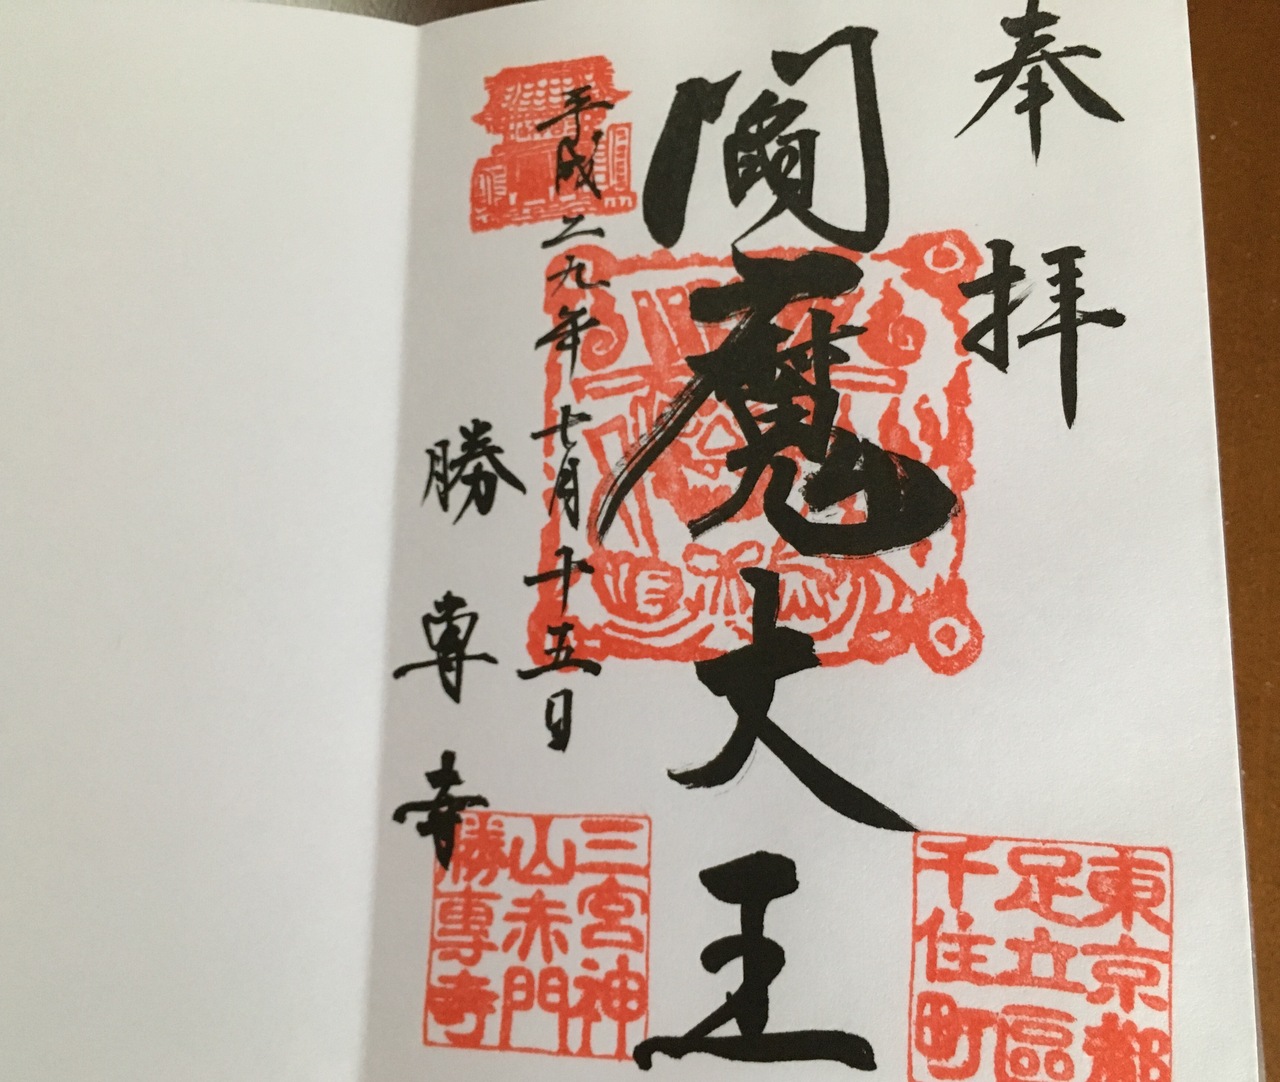 奉拝
閻魔大王
平成二九年七月十五日
勝専寺
東京都
足立區
千住町
三宮神
山赤門
勝專寺